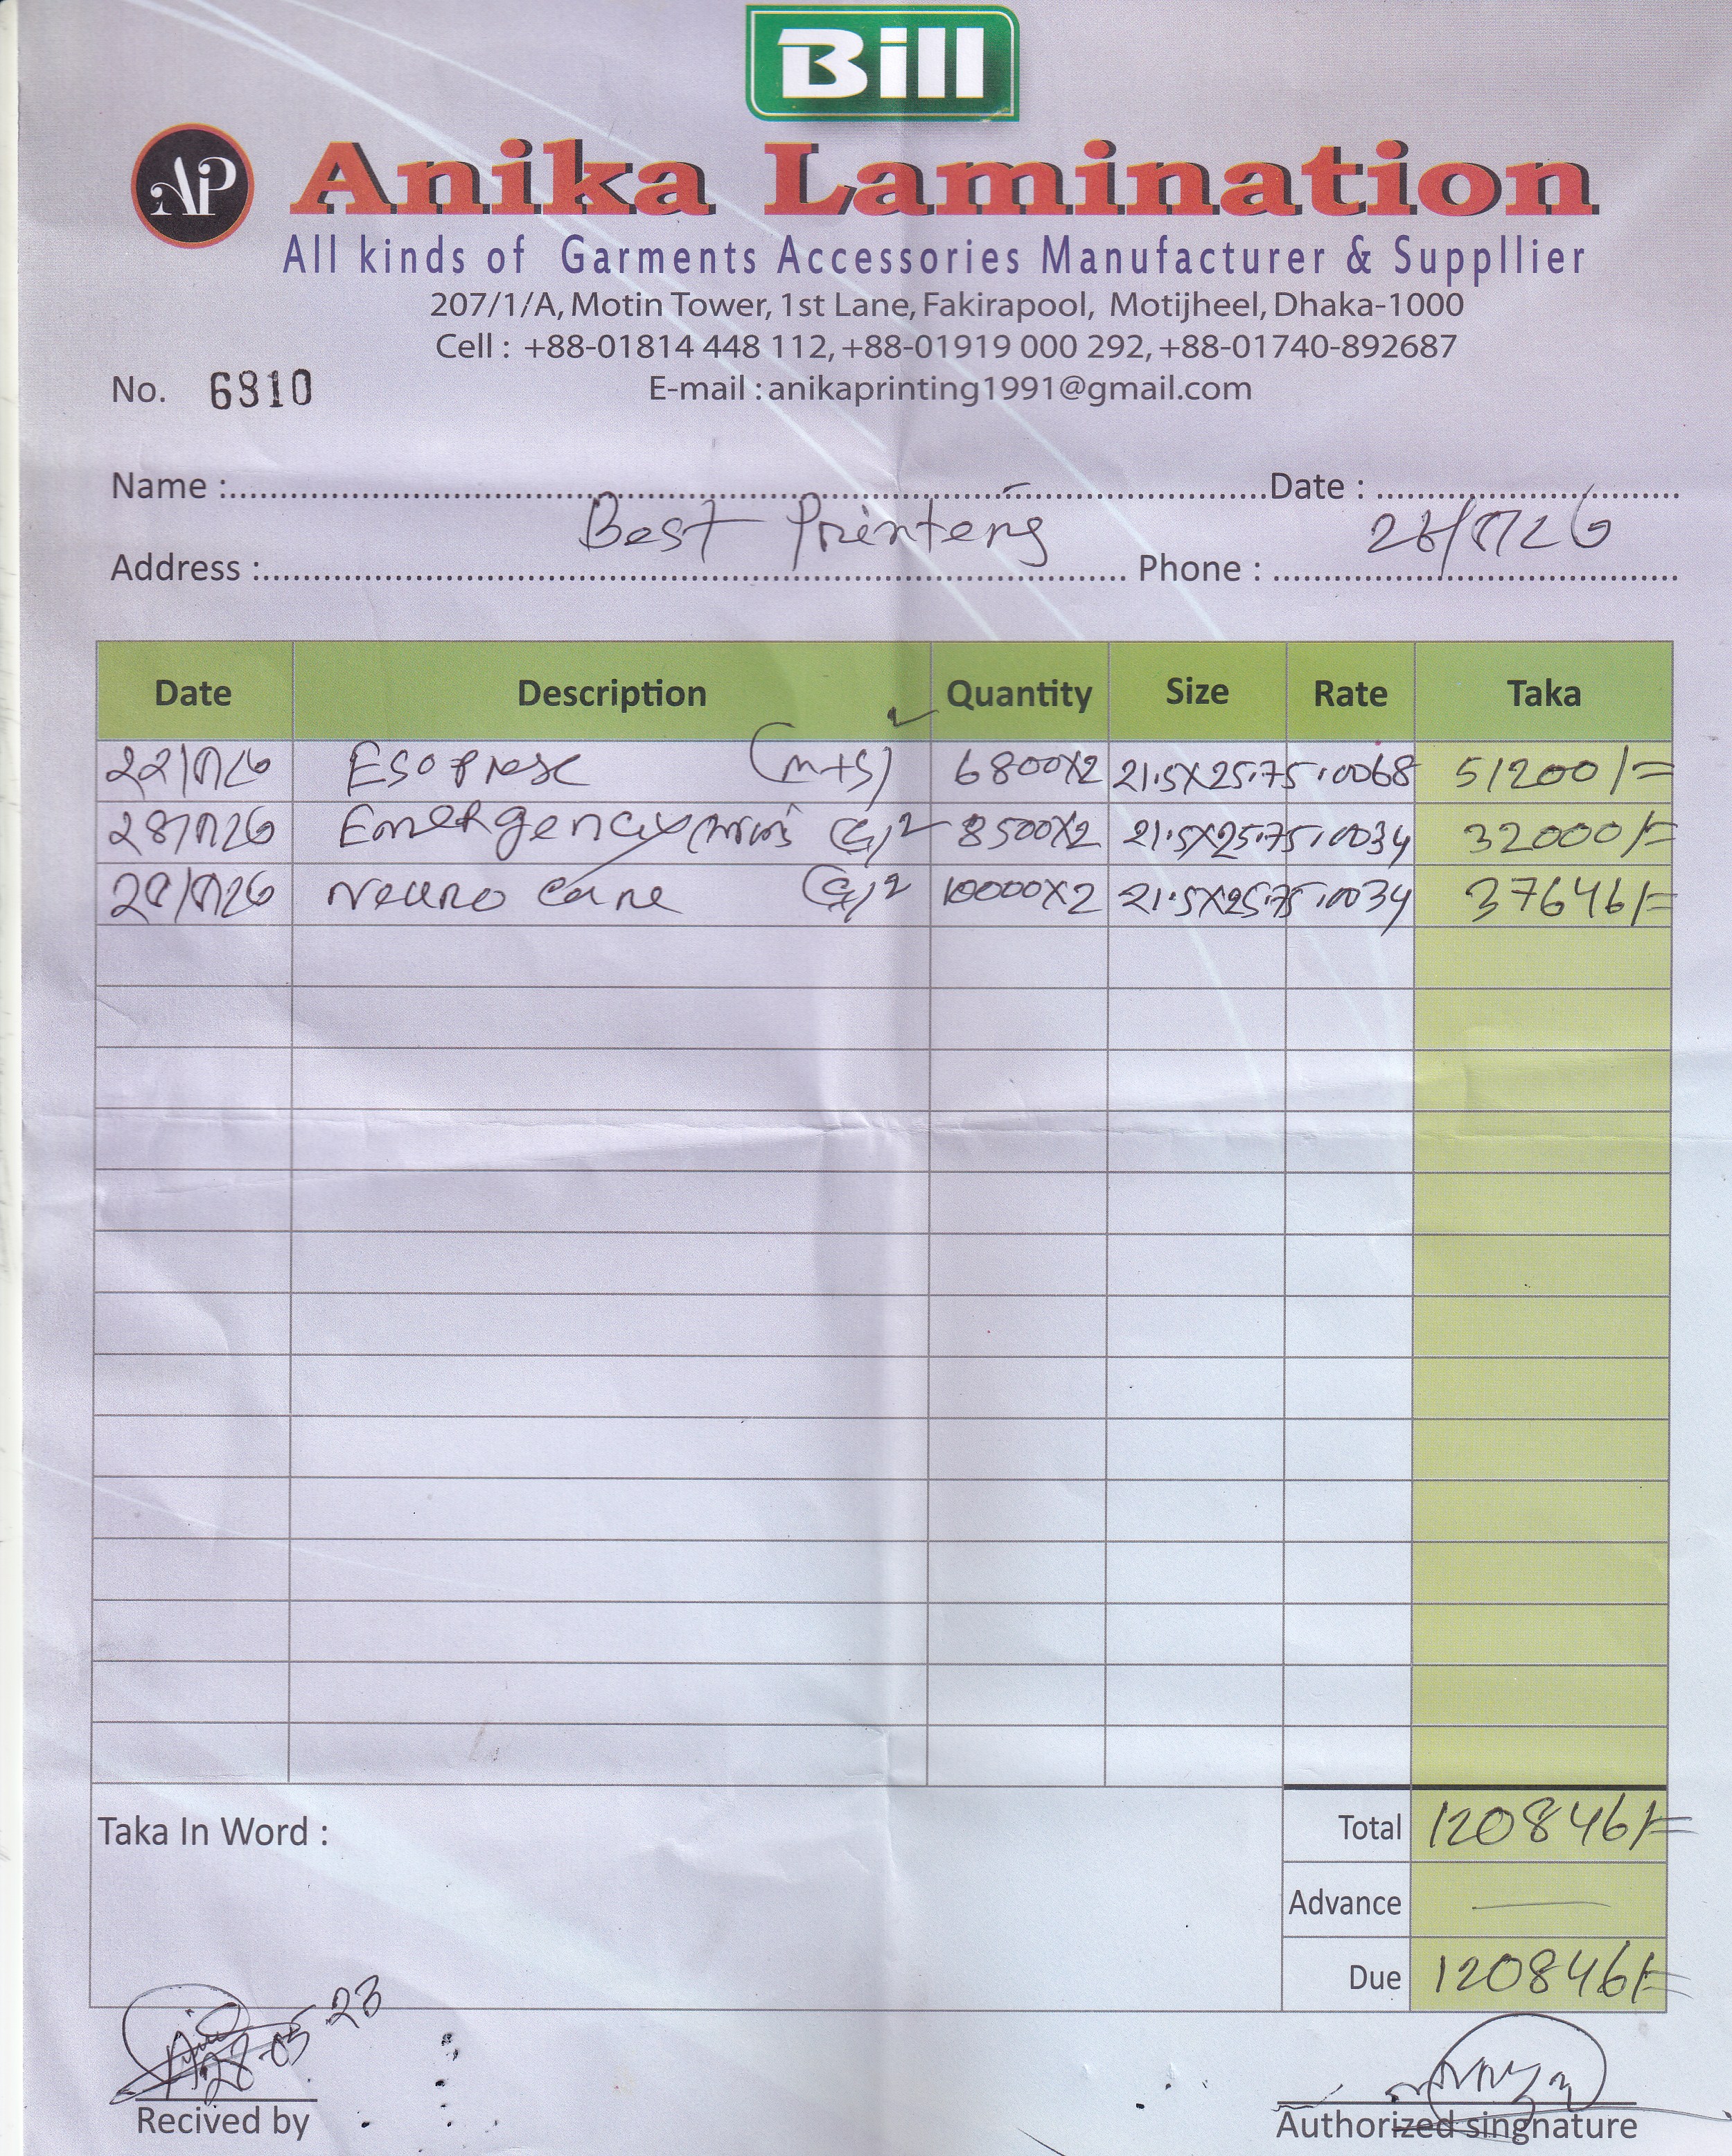 Bill
AP Anika Lamination
All kinds of Garments Accessories Manufacturer & Suppllier
207/1/A, Motin Tower, 1st Lane, Fakirapool, Motijheel, Dhaka-1000
Cell : +88-01814 448 112, +88-01919 000 292, +88-01740-892687
No. 6810 E-mail : anikaprinting1991@gmail.com
Name : Best Printeng Date :
Address : Phone :
Date Description Quantity Size Rate Taka
(m+s) 6800X2 21.5X25.75 .0068 51200/=
Emergency (G)2 8500X2 21.5X25.75 .0034 32000/=
Neuro Care (G)2 10000X2 21.5X25.75 .0034 37646/=
Taka In Word : Total 120846/=
Advance —
Due 120846/=
Recived by Authorized singnature